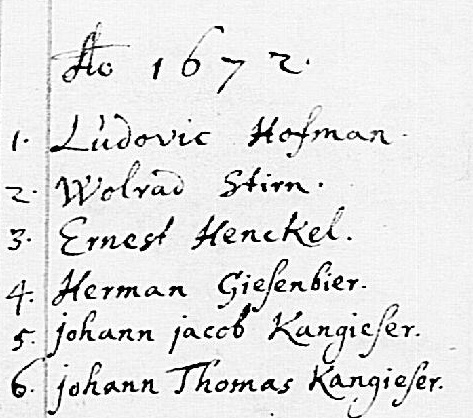 Ao 1672.
1. Ludovic Hofman.
2. Wolrad Stirn.
3. Ernest Henckel.
4. Herman Giesenbier.
5. johann jacob Kangieser.
6. johann Thomas Kangieser.